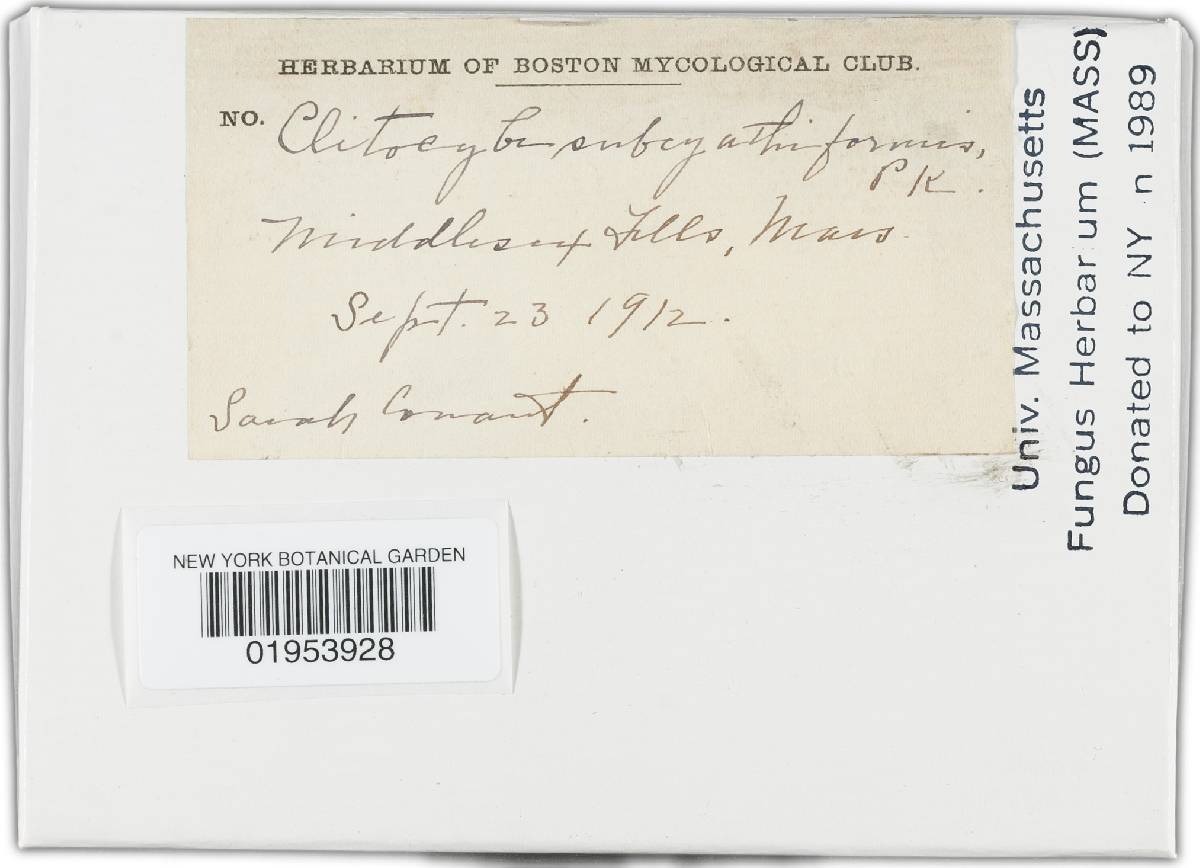 HERBARIUM OF BOSTON MYCOLOGICAL CLUB.
NO. Clitocybe subcyathiformis,
PK.
Middlesex Fells, Mass.
Sept. 23 1912.
Sarah Conant.
Univ. Massachusetts
Fungus Herbar um (MASS)
Donated to NY n 1989
NEW YORK BOTANICAL GARDEN
01953928